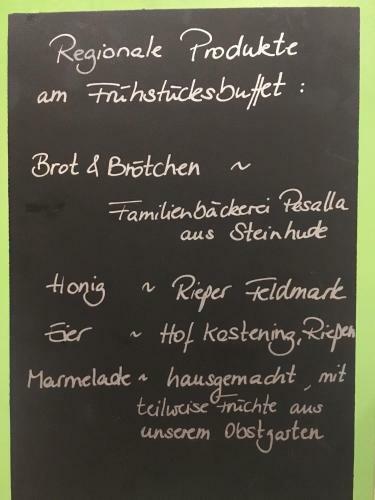 Regionale Produkte
am Frühstücksbuffet :
Brot & Brötchen ~
Familienbäckerei Pesalla
aus Steinhude
Honig ~ Rieper Feldmark
Eier ~ Hof Kostening, Riepen
Marmelade ~ hausgemacht, mit
teilweise Früchte aus
unserem Obstgarten